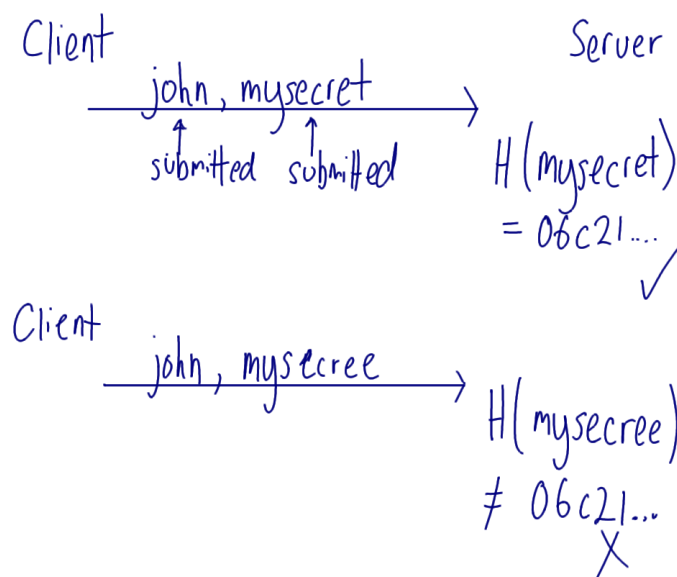 Client
Server
john, mysecret
submitted submitted
H(mysecret)
= 06c21....
✓
Client
john, mysecree
H(mysecree)
≠ 06c21...
X